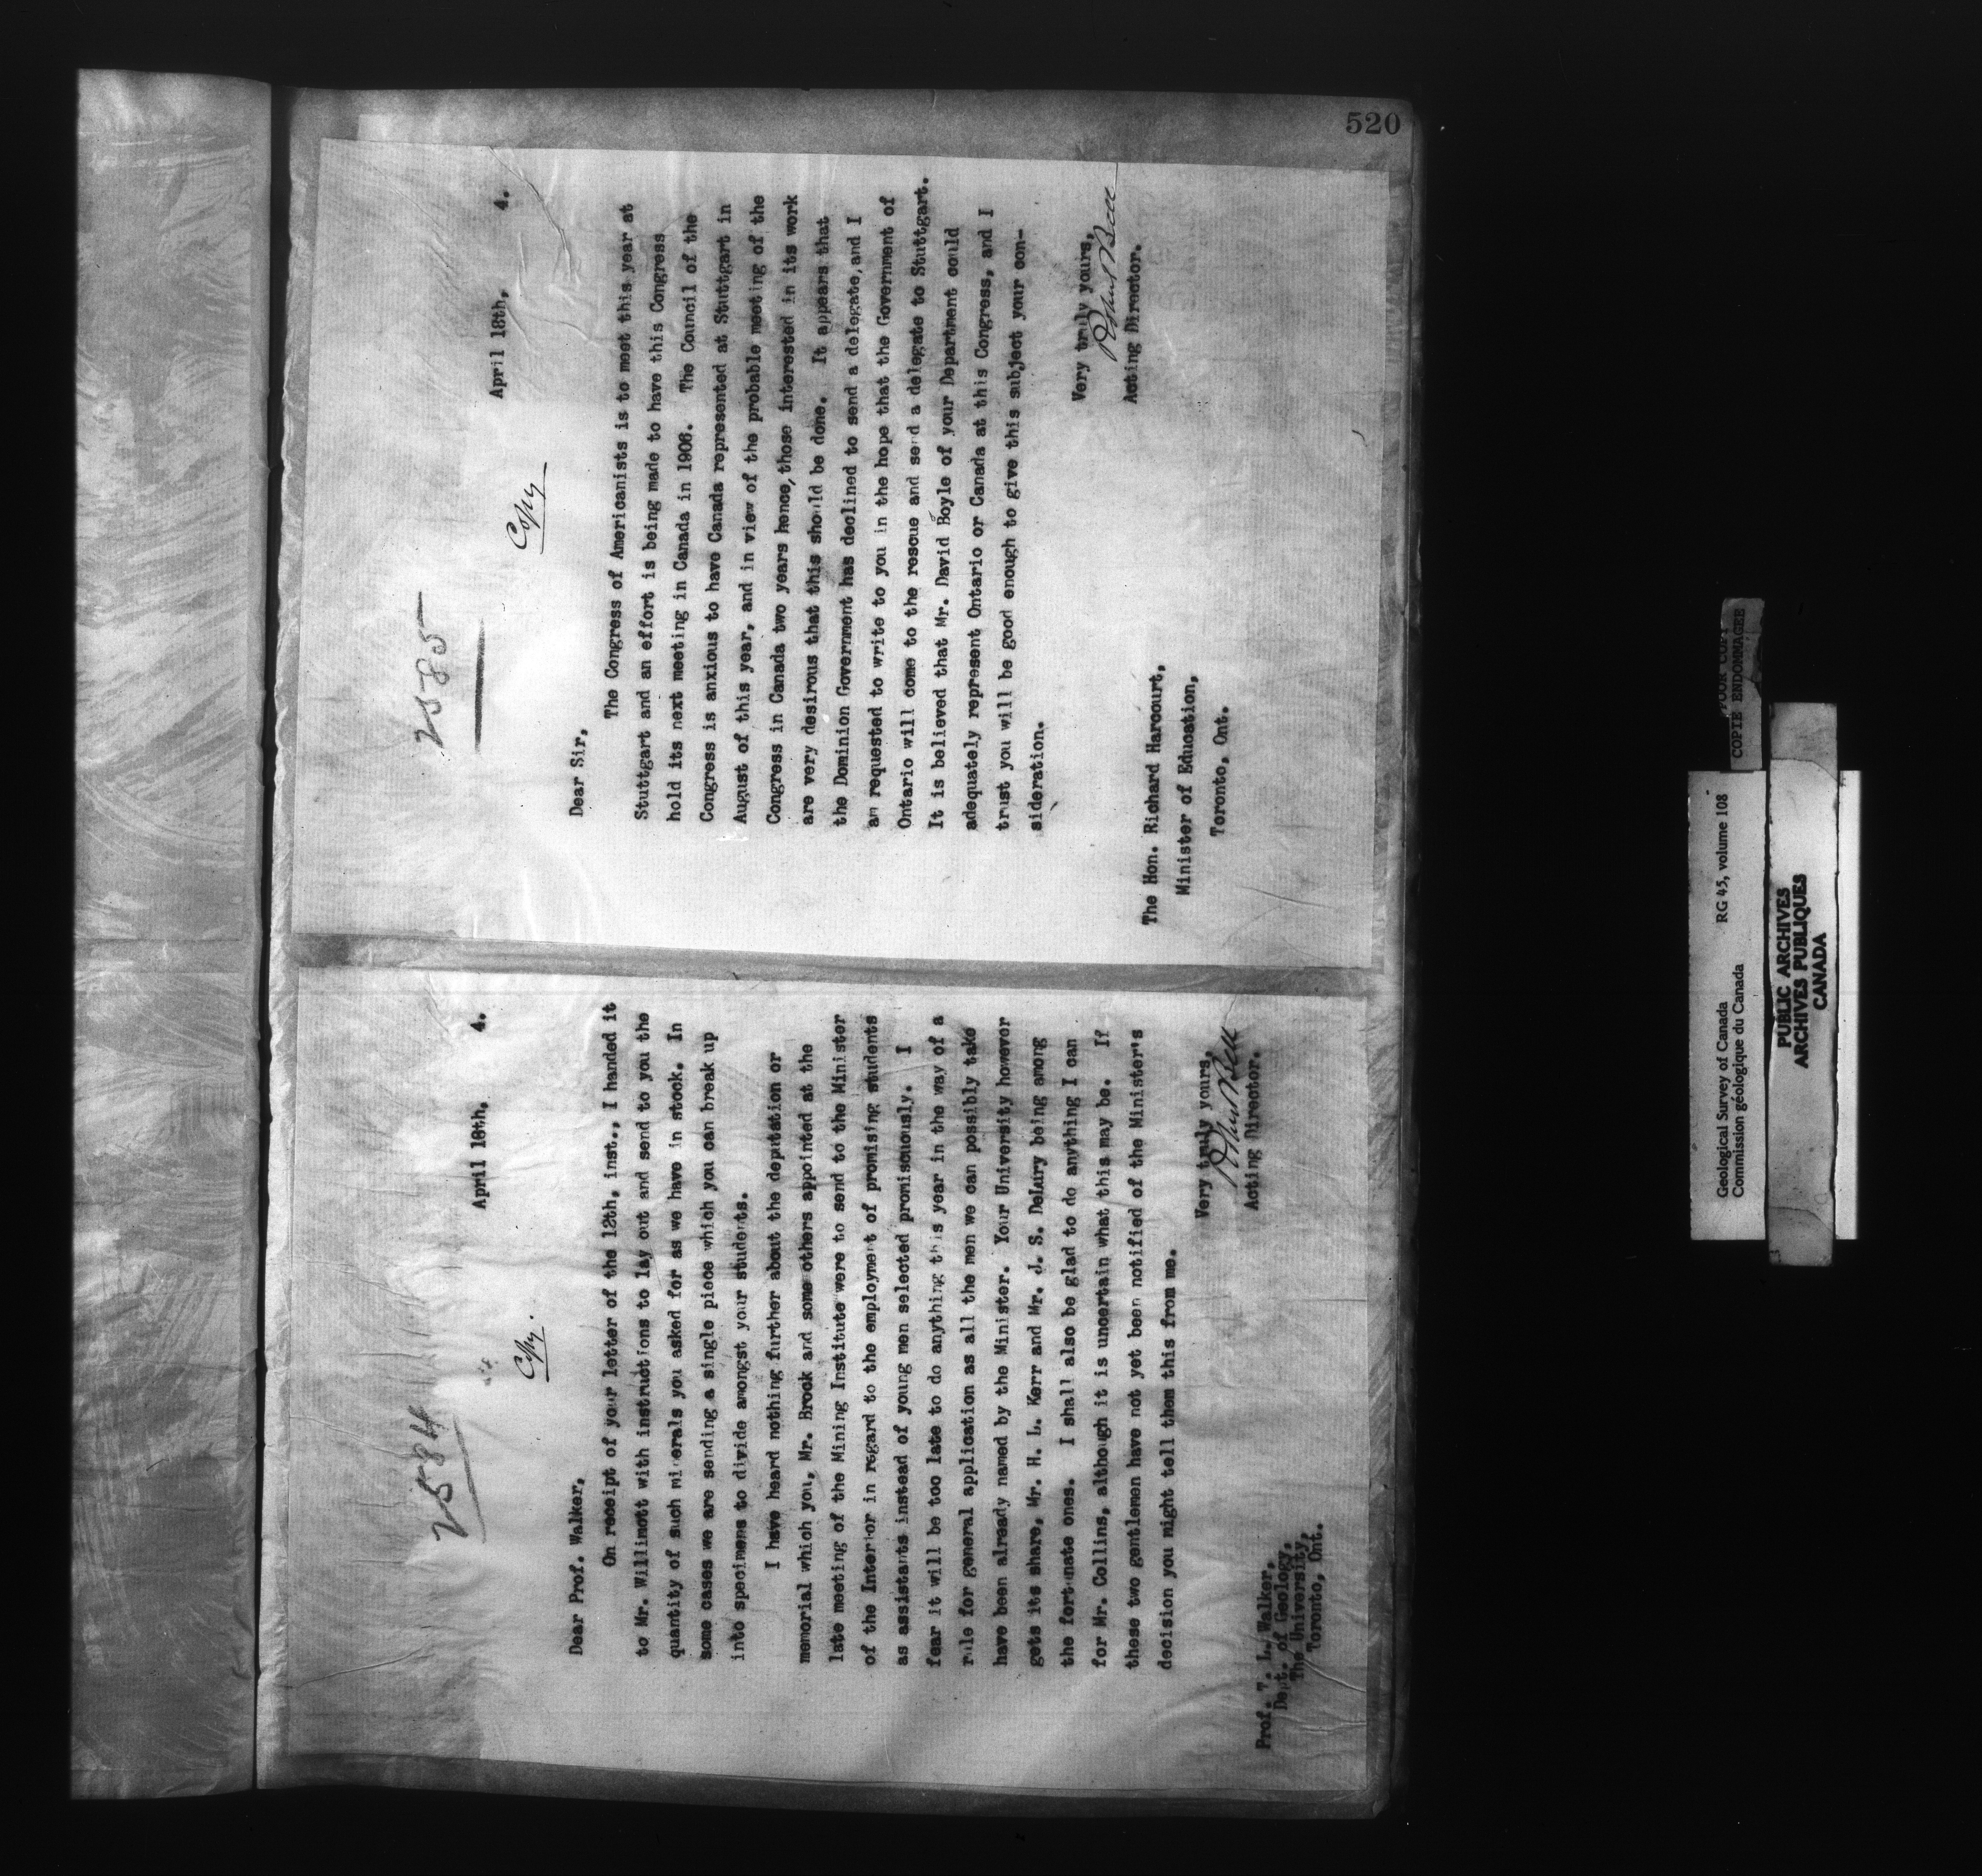 520
2584
April 18th, 4.
Copy.
Dear Prof. Walker,
On receipt of your letter of the 12th, inst., I handed it
to Mr. Willimott with instructions to lay out and send to you the
quantity of such minerals you asked for as we have in stock. In
some cases we are sending a single piece which you can break up
into specimens to divide amongst your students.
I have heard nothing further about the deputation or
memorial which you, Mr. Brock and some others appointed at the
late meeting of the Mining Institute were to send to the Minister
of the Interior in regard to the employment of promising students
as assistants instead of young men selected promiscuously. I
fear it will be too late to do anything this year in the way of a
rule for general application as all the men we can possibly take
have been already named by the Minister. Your University however
gets its share, Mr. H. L. Kerr and Mr. J. S. DeLury being among
the fortunate ones. I shall also be glad to do anything I can
for Mr. Collins, although it is uncertain what this may be. If
these two gentlemen have not yet been notified of the Minister's
decision you might tell them this from me.
Very truly yours,
Robert Bell
Acting Director.
Prof. T. L. Walker,
Dept. of Geology,
The University,
Toronto, Ont.
2585
April 18th, 4.
Copy
Dear Sir,
The Congress of Americanists is to meet this year at
Stuttgart and an effort is being made to have this Congress
hold its next meeting in Canada in 1906. The Council of the
Congress is anxious to have Canada represented at Stuttgart in
August of this year, and in view of the probable meeting of the
Congress in Canada two years hence, those interested in its work
are very desirous that this should be done. It appears that
the Dominion Government has declined to send a delegate, and I
am requested to write to you in the hope that the Government of
Ontario will come to the rescue and send a delegate to Stuttgart.
It is believed that Mr. David Boyle of your Department could
adequately represent Ontario or Canada at this Congress, and I
trust you will be good enough to give this subject your con-
sideration.
Very truly yours,
Robert Bell
Acting Director.
The Hon. Richard Harcourt,
Minister of Education,
Toronto, Ont.
Geological Survey of Canada RG 45, volume 108
Commission géologique du Canada
POOR COPY
COPIE ENDOMMAGEE
PUBLIC ARCHIVES
ARCHIVES PUBLIQUES
CANADA